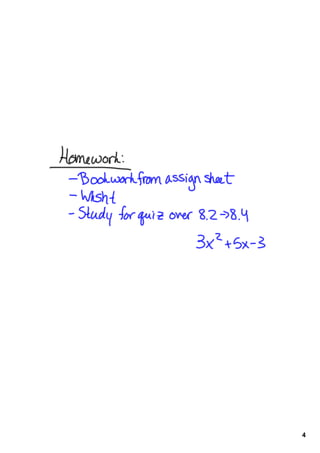 Homework:
- Bookwork from assign sheet
- Wksht
- Study for quiz over 8.2→8.4
3x²+5x-3
4